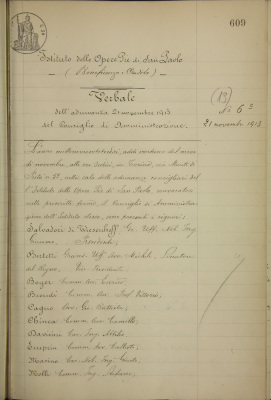 609
Istituto delle Opere Pie di San Paolo
(Beneficenza e Credito)
Verbale
dell'adunanza 21 novembre 1913
del Consiglio di Amministrazione.
(13)
N. 6
21 novembre 1913
L'anno millenovecentotredici, addì ventuno del mese
di novembre, alle ore sedici, in Torino, via Monte di
Pietà nº 32, nella sala delle adunanze consigliari del
l'Istituto delle Opere Pie di San Paolo, convocatosi
nelle prescritte forme il Consiglio di Amministra
zione dell'Istituto stesso, sono presenti i signori:
Salvadori di Wiesenhoff Gr. Uff. Nob. Ing.
Giacomo Presidente
Bertetti Grand. Uff. Avv. Michele, Senatore
del Regno, Vice Presidente
Boyer Comm. Avv.
Biondi Comm. Avv. Prof.
Cagno Cav. Gr. Battista
Chiesa Comm. Avv. Camillo
Cav. Ing. Attilio
Comm. Avv.
Cav. Nob. Ing.
Molli Comm. Ing. Stefano